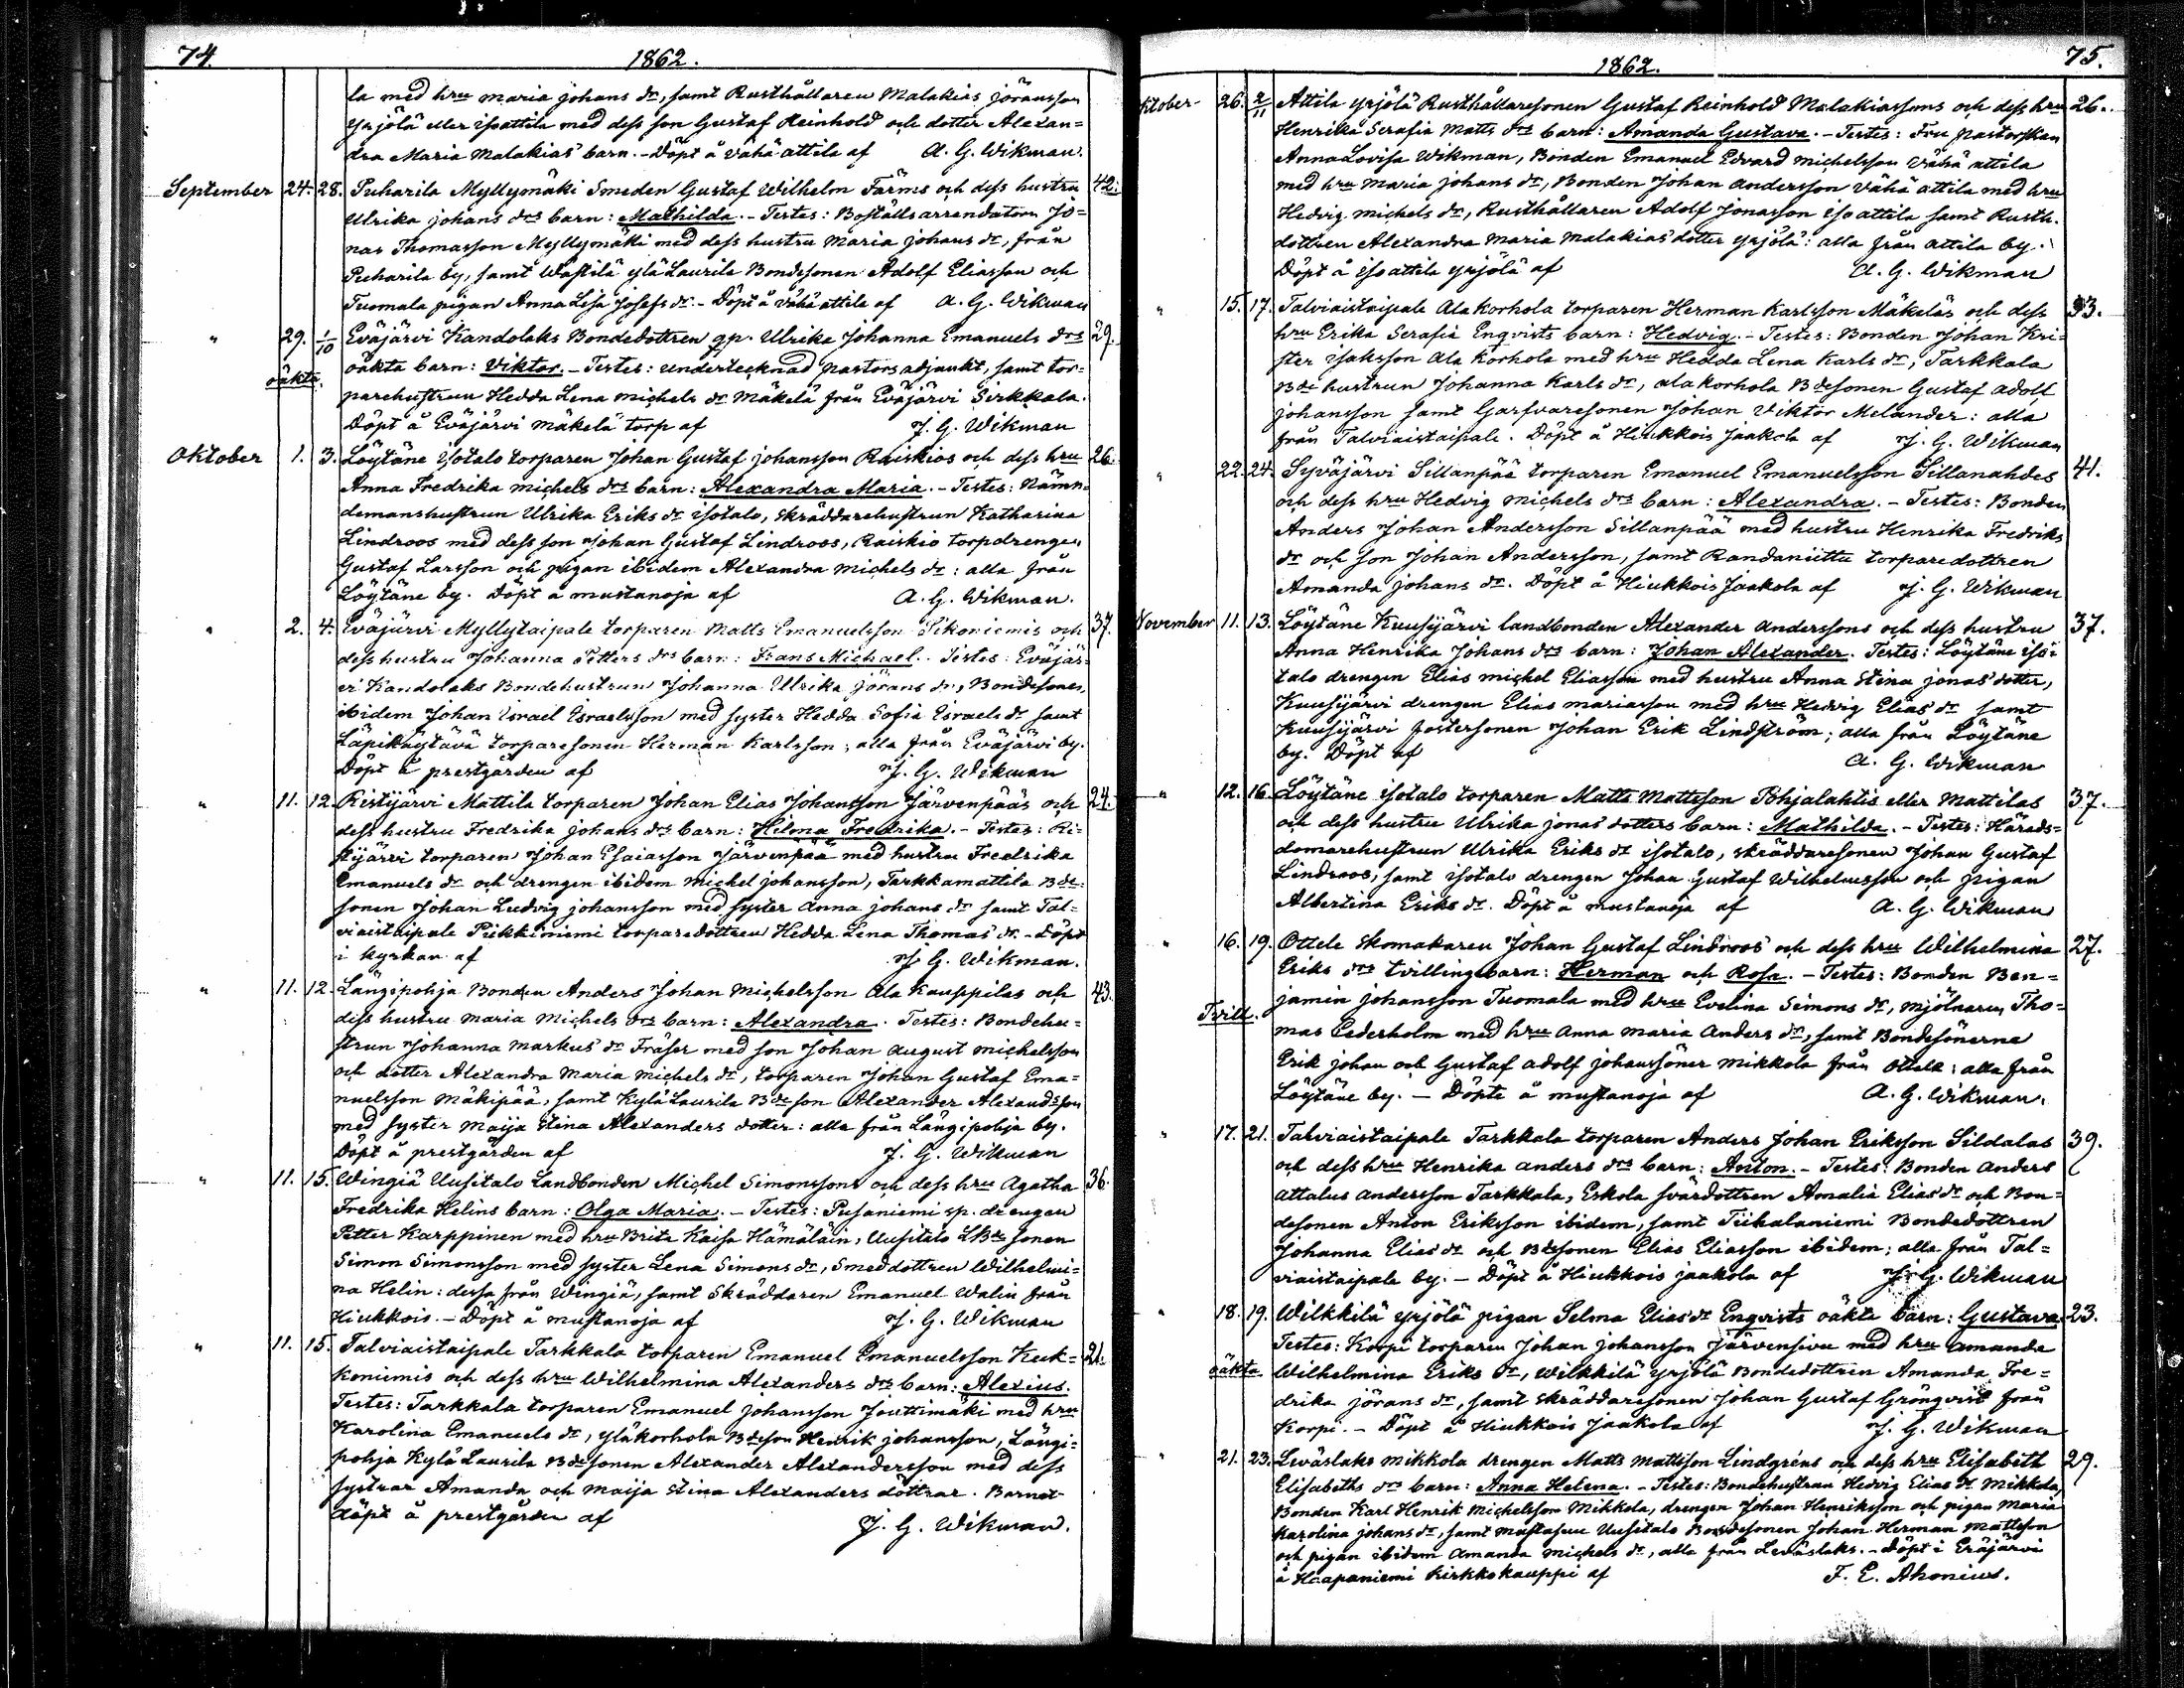 74.
1862.
la med hru Maria Johans dr, samt Rusthållaren Malakias Jöransson
Yrjölä eller isoattila med dess son Gustaf Reinhold och dotter Alexan=
dra Maria Malakias barn. - Döpt å Vähä attila af A. G. Wikman.
September 24. 28. Puharila Myllymäki Smeden Gustaf Wilhelm Färms och dess hustru 42.
Ulrika Johans drs barn: Mathilda. - Testes: Boställsarrendatorn Jo=
nas Thomasson Myllymäki med dess hustru Maria Johans dr, från
Puharila by, samt Wästilä ylä Laurila Bondesonen Adolf Eliasson och
Tuomala pigan Anna Lisa Josefs dr. - Döpt å Vähä attila af A. G. Wikman
" 29. 1/10 Eväjärvi Kandolaks Bondedottren gp. Ulrika Johanna Emanuels drs 29.
oäkta. oäkta barn: Viktor. - Testes: undertecknad pastorsadjunkt, samt tor=
parehustrun Hedda Lena Michels dr Mäkelä från Eväjärvi Sirkkala.
Döpt å Eväjärvi Mäkelä torp af J. G. Wikman
Oktober 1. 3. Löytäne isotalo torparen Johan Gustaf Johansson Raiskios och dess hru 26.
Anna Fredrika Michels drs barn: Alexandra Maria. - Testes: Nämn=
demanshustrun Ulrika Eriks dr isotalo, skräddarehustrun Katharina
Lindroos med dess son Johan Gustaf Lindroos, Raiskio torpdrengen
Gustaf Larsson och pigan ibidem Alexandra Michels dr: alla från
Löytäne by. Döpt å mustanoja af A. G. Wikman.
" 2. 4. Eväjärvi Myllytaipale torparen Matts Emanuelsson Sikoniemis och 37.
dess hustru Johanna Petters drs barn: Frans Michael. Testes: Eväjär=
vi Kandolaks Bondehustrun Johanna Ulrika Jörans dr, Bondesonen
ibidem Johan Israel Israelsson med syster Hedda Sofia Israels dr samt
Läpikäytävä torparesonen Herman Karlsson; alla från Eväjärvi by.
Döpt å prestgården af J. G. Wikman
" 11. 12. Ristijärvi Mattila torparen Johan Elias Johansson Järvenpääs och 24.
dess hustru Fredrika Johans drs barn: Hilma Fredrika. - Testes: Ri=
stijärvi torparen Johan Esaiasson Järvenpää med hustru Fredrika
Emanuels dr och drengen ibidem Michel Johansson, Tarkkamattila Bde=
sonen Johan Ludvig Johansson med syster Anna Johans dr samt Tal=
viaistaipale Pukkiniemi torparedottren Hedda Lena Thomas dr. - Döpt
i kyrkan af J. G. Wikman.
" 11. 12. Längipohja Bonden Anders Johan Michelsson Ala Kauppilas och 43.
dess hustru Maria Michels drs barn: Alexandra. Testes: Bondehu=
strun Johanna Markus dr Fräser med son Johan August Michelsson
och dotter Alexandra Maria Michels dr, torparen Johan Gustaf Ema=
nuelsson Mäkipää, samt Kylä Laurila Bde son Alexander Alexandsson
med syster Maija Stina Alexanders dotter: alla från Längipohja by.
Döpt å prestgården af J. G. Wikman
" 11. 15. Wingiä Uusitalo Landbonden Michel Simonssons och dess hru Agatha 36.
Fredrika Helins barn: Olga Maria. - Testes: Pusaniemi sp. drengen
Petter Karppinen med hru Brita Kaisa Hämäläin, Uusitalo LBde sonen
Simon Simonsson med syster Lena Simons dr, Smeddottren Wilhelmi=
na Helin: dessa från Wingiä, samt Skräddaren Emanuel Walin från
Hiukkois. - Döpt å mustanoja af J. G. Wikman
" 11. 15. Talviaistaipale Tarkkala torparen Emanuel Emanuelsson Keck= 21.
koniemis och dess hru Wilhelmina Alexanders drs barn: Alexius.
Testes: Tarkkala torparen Emanuel Johansson Jouttimäki med hru
Karolina Emanuels dr, yläkorhola Bdeson Henrik Johansson, Längi=
pohja Kylä Laurila Bdesonen Alexander Alexandersson med dess
systrar Amanda och Maija Stina Alexanders döttrar. Barnet
döpt å prestgården af J. G. Wikman.
75.
1862.
Oktober 26. 2/11 Attila yrjölä Rusthållaresonen Gustaf Reinhold Malakiassons och dess hru 26.
Henrika Serafia Matts drs barn: Amanda Gustava. - Testes: Fru Pastorskan
Anna Lovisa Wikman, Bonden Emanuel Edvard Michelsson Vähä attila
med hru Maria Johans dr, Bonden Johan Andersson Vähä attila med hru
Hedvig Michels dr, Rusthållaren Adolf Jonasson iso attila samt Rusth.
dottren Alexandra Maria Malakias dotter yrjölä: alla från attila by.
Döpt å iso attila yrjölä af A. G. Wikman
" 15. 17. Talviaistaipale Ala Korhola torparen Herman Karlsson Mäkeläs och dess 33.
hru Erika Serafia Enqvists barn: Hedvig. - Testes: Bonden Johan Kri=
ster Isaksson Ala Korhola med hru Hedda Lena Karls dr, Tarkkala
Bde hustrun Johanna Karls dr, ala korhola Bdesonen Gustaf Adolf
Johansson samt Garfvaresonen Johan Viktor Melander: alla
från Talviaistaipale. Döpt å Hiukkois Jaakola af J. G. Wikman
" 22. 24. Syväjärvi Sillanpää torparen Emanuel Emanuelsson Sillanahdes 41.
och dess hru Hedvig Michels drs barn: Alexandra. - Testes: Bonden
Anders Johan Andersson Sillanpää med hustru Henrika Fredriks
dr och son Johan Andersson, samt Randaniittu torparedottren
Amanda Johans dr. Döpt å Hiukkois Jaakola af J. G. Wikman
November 11. 13. Löytäne Kuusijärvi landbonden Alexander Anderssons och dess hustru 37.
Anna Henrika Johans drs barn: Johan Alexander. Testes: Löytäne iso=
talo drengen Elias Michel Eliasson med hustru Anna Stina Jonas dotter,
Kuusijärvi drengen Elias Mariasson med hru Hedvig Elias dr samt
Kuusijärvi fostersonen Johan Erik Lindström; alla från Löytäne
by. Döpt af A. G. Wikman
" 12. 16. Löytäne isotalo torparen Matts Mattsson Pohjalahtis eller Mattilas 37.
och dess hustru Ulrika Jonas dotters barn: Mathilda. - Testes: Härads=
domarehustrun Ulrika Eriks dr isotalo, skräddaresonen Johan Gustaf
Lindroos, samt isotalo drengen Johan Gustaf Wilhelmsson och pigan
Albertina Eriks dr. Döpt å mustanoja af A. G. Wikman
" 16. 19. Ottele Skomakaren Johan Gustaf Lindroos och dess hru Wilhelmina 27.
Eriks drs tvillingebarn: Herman och Rosa. - Testes: Bonden Ben=
Tvill. jamin Johansson Tuomala med hru Evelina Simons dr, mjölnaren Tho=
mas Cederholm med hru Anna Maria Anders dr, samt Bondesönerna
Erik Johan och Gustaf Adolf Johanssöner Mikkola från Ottele: alla från
Löytäne by. - Döpte å mustanoja af A. G. Wikman.
" 17. 21. Talviaistaipale Tarkkala torparen Anders Johan Eriksson Sildalas 39.
och dess hru Henrika Anders drs barn: Anton. - Testes: Bonden Anders
Attalus Andersson Tarkkala, Eskola svärdottren Amalia Elias dr och Bon=
desonen Anton Eriksson ibidem, samt Tiihalaniemi Bondedottren
Johanna Elias dr och Bdesonen Elias Eliasson ibidem; alla från Tal=
viaistaipale by. - Döpt å Hiukkois Jaakola af J. G. Wikman
" 18. 19. Wilkkilä yrjölä pigan Selma Elias dr Enqvists oäkta barn: Gustava. 23.
Testes: Korpi torparen Johan Johansson Järvensivu med hru Amanda
oäkta Wilhelmina Eriks dr, Wilkkilä yrjölä Bondedottren Amanda Fre=
drika Jörans dr, samt skräddaresonen Johan Gustaf Grönqvist från
Korpi. - Döpt å Hiukkois Jaakola af J. G. Wikman
" 21. 23. Leväslaks Mikkola drengen Matts Mattsson Lindgréns och dess hru Elisabeth 29.
Elisabeths drs barn: Anna Helena. - Testes: Bondehustrun Hedvig Elias dr Mikkola,
Bonden Karl Henrik Michelsson Mikkola, drengen Johan Henriksson och pigan Maria
Karolina Johans dr, samt Mustasuu Uusitalo Bondesonen Johan Herman Mattsson
och pigan ibidem Amanda Michels dr, alla från Leväslaks. - Döpt i Eräjärvi
å Haapaniemi Kirkkokauppi af F. E. Ahonius.